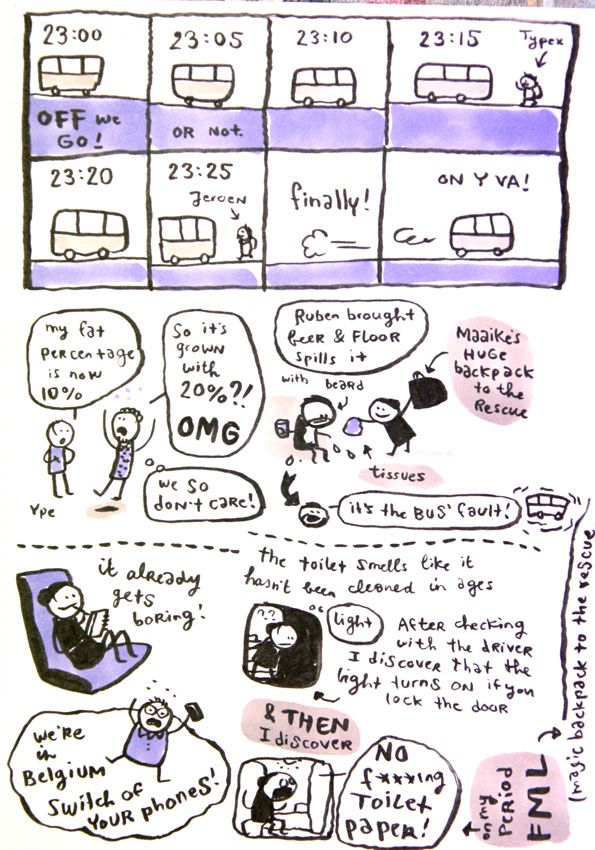 23:00
OFF we
GO!
23:05
OR Not.
23:10
23:15
Typex
23:20
23:25
Jeroen
finally!
ON Y VA!
my fat
percentage
is now
10%
So it's
grown
with
20%?!
OMG
Ype
we so
don't care!
Ruben brought
beer & FLOOR
spills it
with beard
Maaike's
HUGE
backpack
to the
Rescue
tissues
it's the BUS' fault!
it already
gets
boring!
the toilet smells like it
hasn't been cleaned in ages
??
light
After checking
with the driver
I discover that the
light turns ON if you
lock the door
& THEN
I discover
We're
in
Belgium
Switch of
YOUR phones!
NO
f***ing
Toilet
paper!
on my
PERIOD
FML
(magic backpack to the rescue